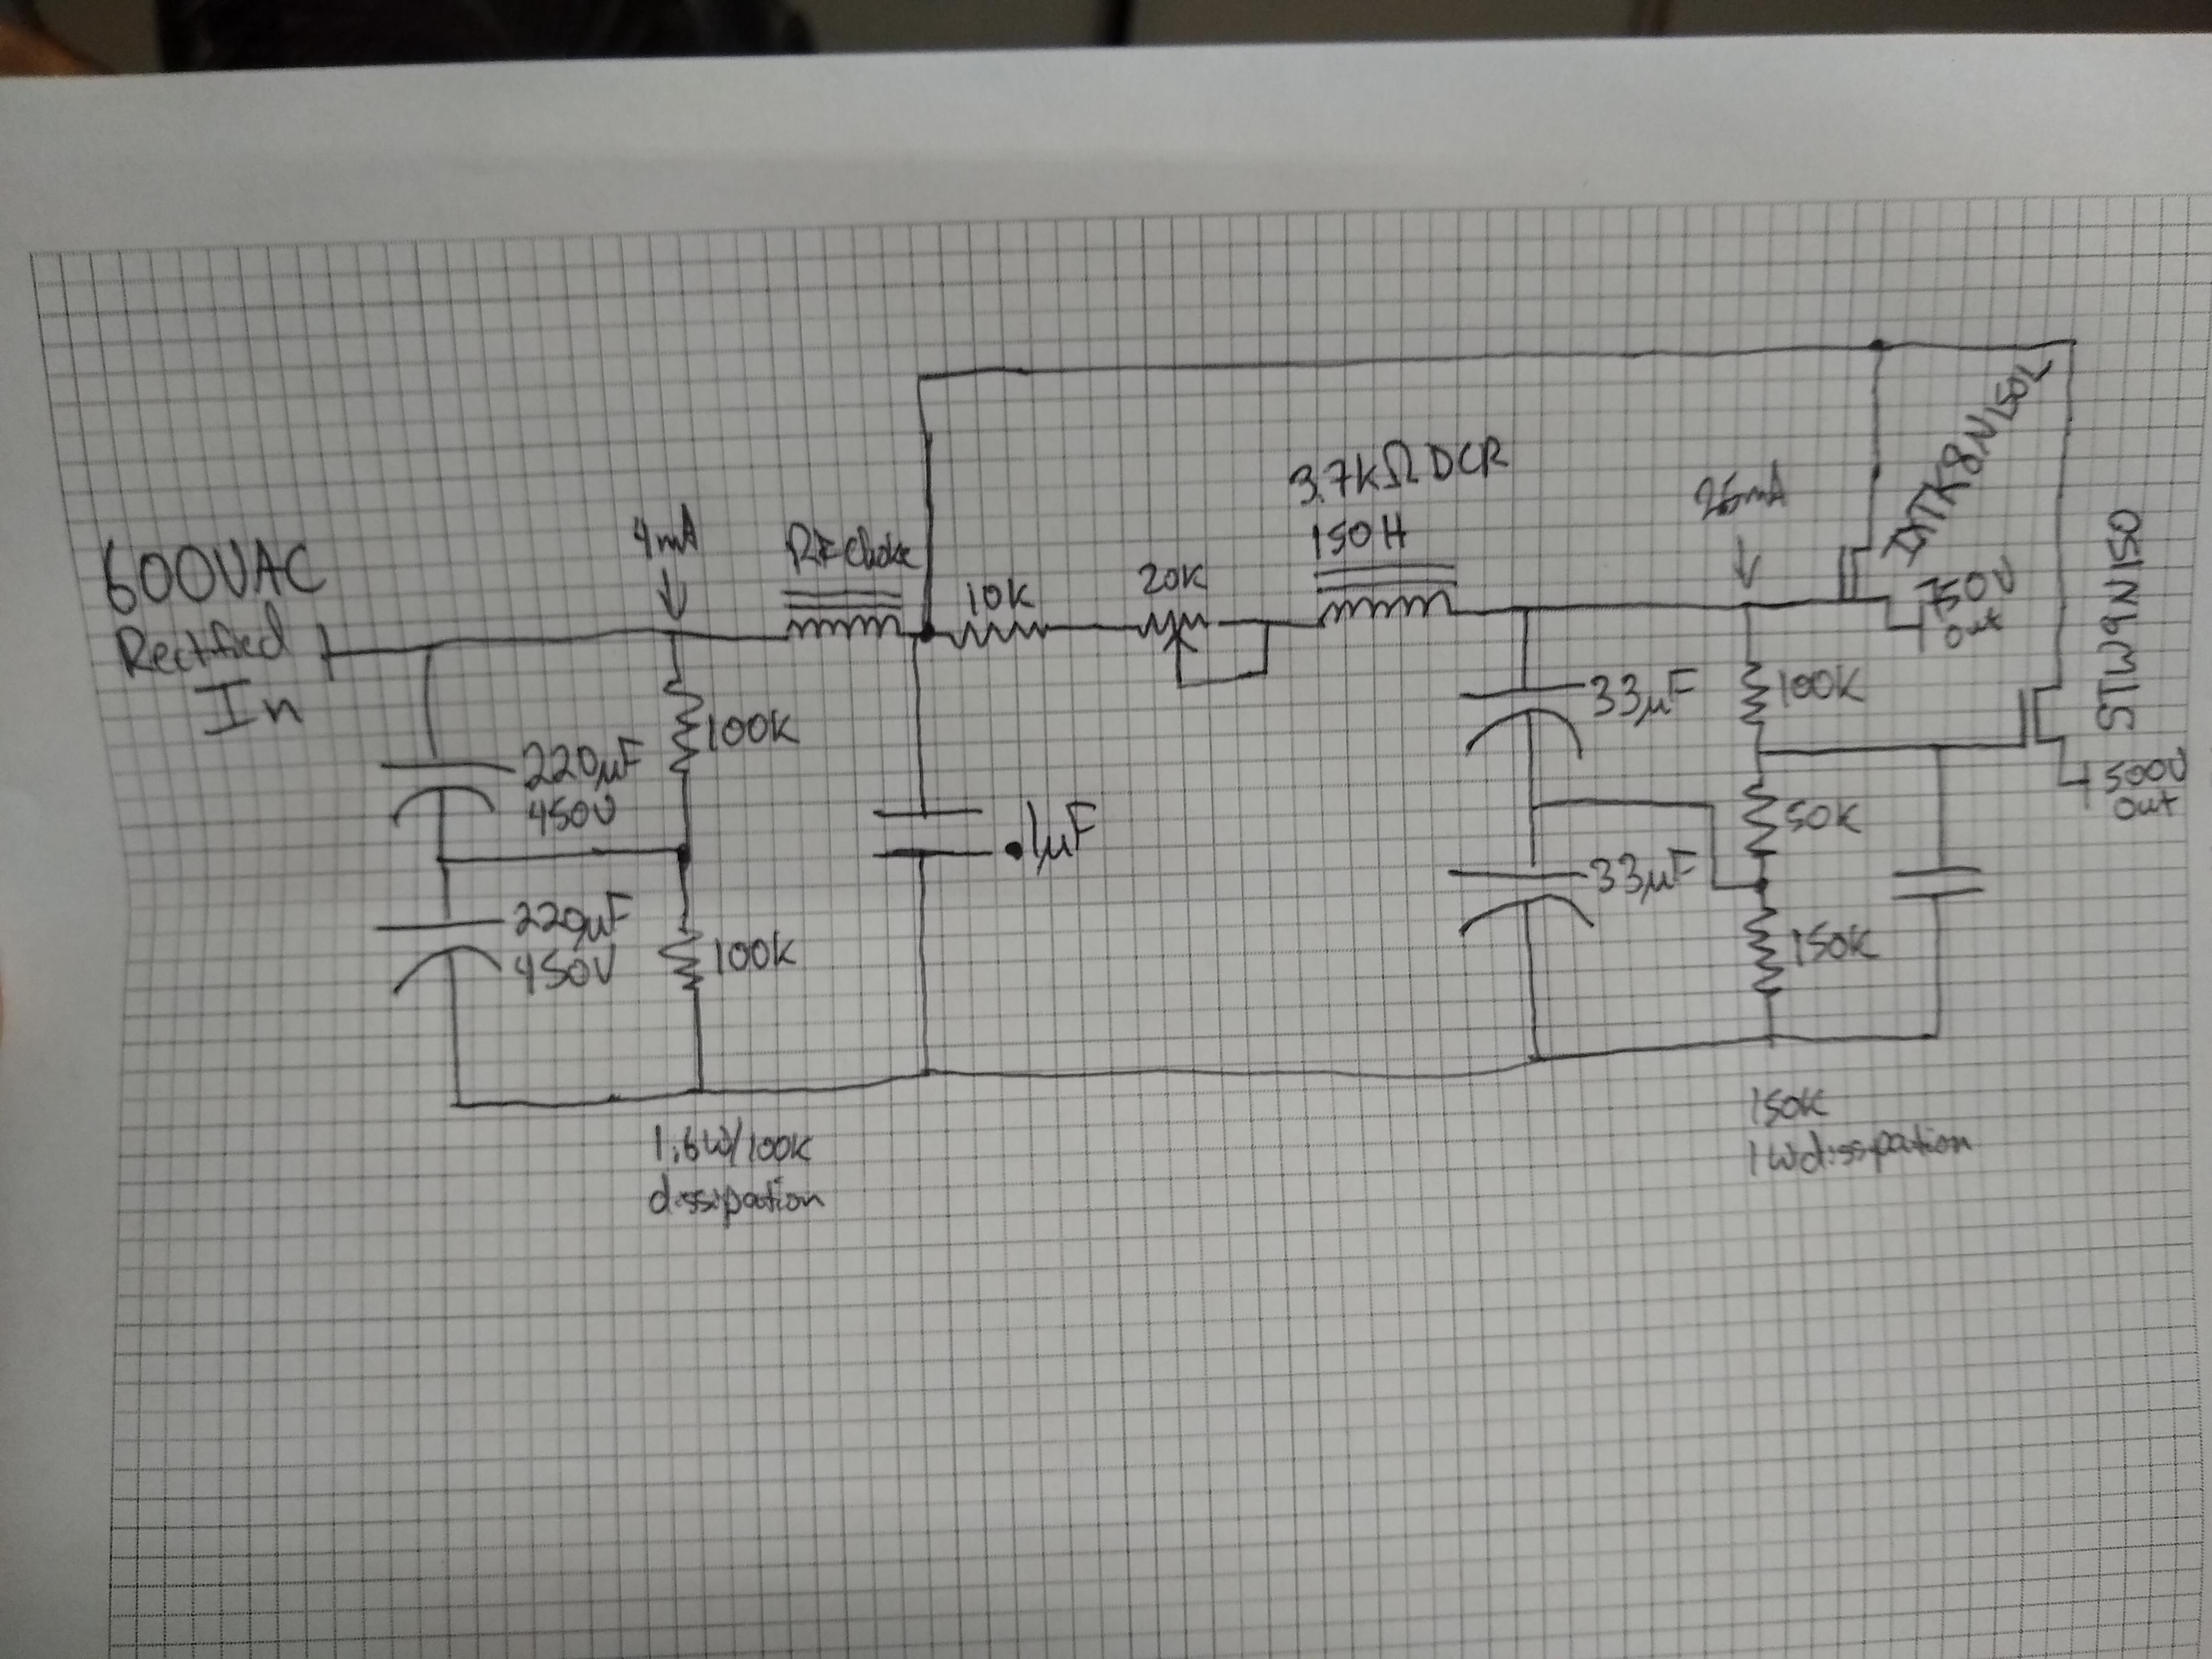 600VAC
Rectified
In
4mA
RF choke
10K
20K
3.7KΩ DCR
150H
IXTK8N150L
out
STW9N150
500V
out
100K
220µF
450V
220µF
450V
100K
.1µF
33µF
33µF
100K
50K
150K
1.6W/100K
dissipation
150K
1W dissipation